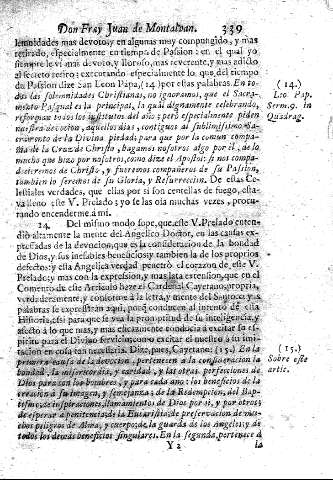 Don Fray Juan de Montalvan. 339
lemnidades mas devoto, y en algunas muy compungido, y mas
retirado, especialmente en tiempo de Passion: en el qual yo
siempre le vi mas devoto, y lloroso, mas reverente, y mas adicto
al secreto retiro: executando especialmente lo que del tiempo
de Passion dize San Leon Papa, (14.) por estas palabras. En to-
das las solemnidades Christianas, no ignoramos, que el Sacra-
mento Pasqual es la principal, la qual dignamente celebrando,
reforman todos los institutos del año; pero especialmente piden
nuestra devocion, aquellos dias, contiguos al sublimissimo Sa-
cramento de la Divina piedad; para que por la comun compa-
ñia de la Cruz de Christo, hagamos nosotros algo por él, de lo
mucho que hizo por nosotros, como dize el Apostol: si nos compa-
decieremos de Christo, y fueremos compañeros de su Passion,
tambien lo seremos de su Gloria, y Resurreccion. De estas Ce-
lestiales verdades, que ellas por si son centellas de fuego, esta-
va lleno este V. Prelado; y se las oia muchas vezes, procu-
rando encenderme à mi.
24. Del mismo modo supe, que este V. Prelado enten-
dió altamente la mente del Angelico Doctor, en las causas ex-
pressadas de la devocion, que es la consideracion de la bondad
de Dios, y sus inefables beneficios; y tambien la de los proprios
defectos: y esta Angelica verdad penetrò el corazon de este V.
Prelado; y mas con la expression, y mas lata extension, que en el
Comento de este Articulo haze el Cardenal Cayetano, propria,
verdaderamente, y conforme à la letra, y mente del Santo: cuyas
palabras se expressaràn aqui, porque conducen al intento de esta
Historia, assi para que se vea la profundidad de su inteligencia, y
afecto à lo que mas, y mas eficazmente conducia à excitar su es-
piritu para el Divino Servicio; como à excitar el nuestro à su imi-
tacion en cosa tan necessaria. Dize, pues, Cayetano: (15.) En la
primera causa de la devocion, pertenecen à la consideracion la
bondad, la misericordia, y caridad, y las otras perfecciones de
Dios para con los hombres, y para cada uno: los beneficios de la
creacion à su imagen, y semejança; de la Redempcion, del Bap-
tismo, de inspiraciones, llamamientos de Dios por si, y por otros;
de esperar à penitencia; de la Eucaristia; de preservacion de mu-
chos peligros de Alma, y cuerpo; de la guarda de los Angeles; y de
todos los demàs beneficios singulares. En la segunda, pertenece à
Y 2 la
(14.)
Leo Pap.
Serm. 9. in
Quadrag.
(15.)
Sobre este
artic.